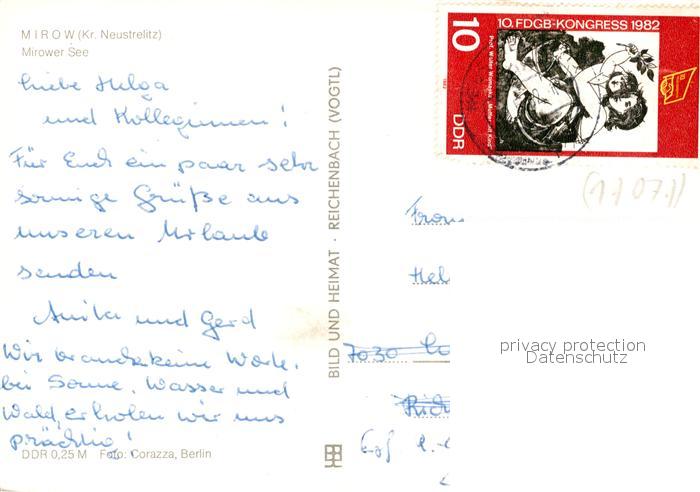 MIROW (Kr. Neustrelitz)
Mirower See
Liebe Helga
und Kolleginnen!
Für Euch ein paar sehr
sonnige Grüße aus
unserem Urlaub
senden
Anita und Gerd
Wir brauchen keine Worte,
bei Sonne, Wasser und
Wald, erholen wir uns
prächtig!
DDR 0,25 M Foto: Corazza, Berlin
BILD UND HEIMAT · REICHENBACH (VOGTL)
10. FDGB-KONGRESS 1982
10
DDR
Prof. Walter Womacka „Mutter mit Kind“
1982
(17071)
Frau
Hel
7030
privacy protection
Datenschutz